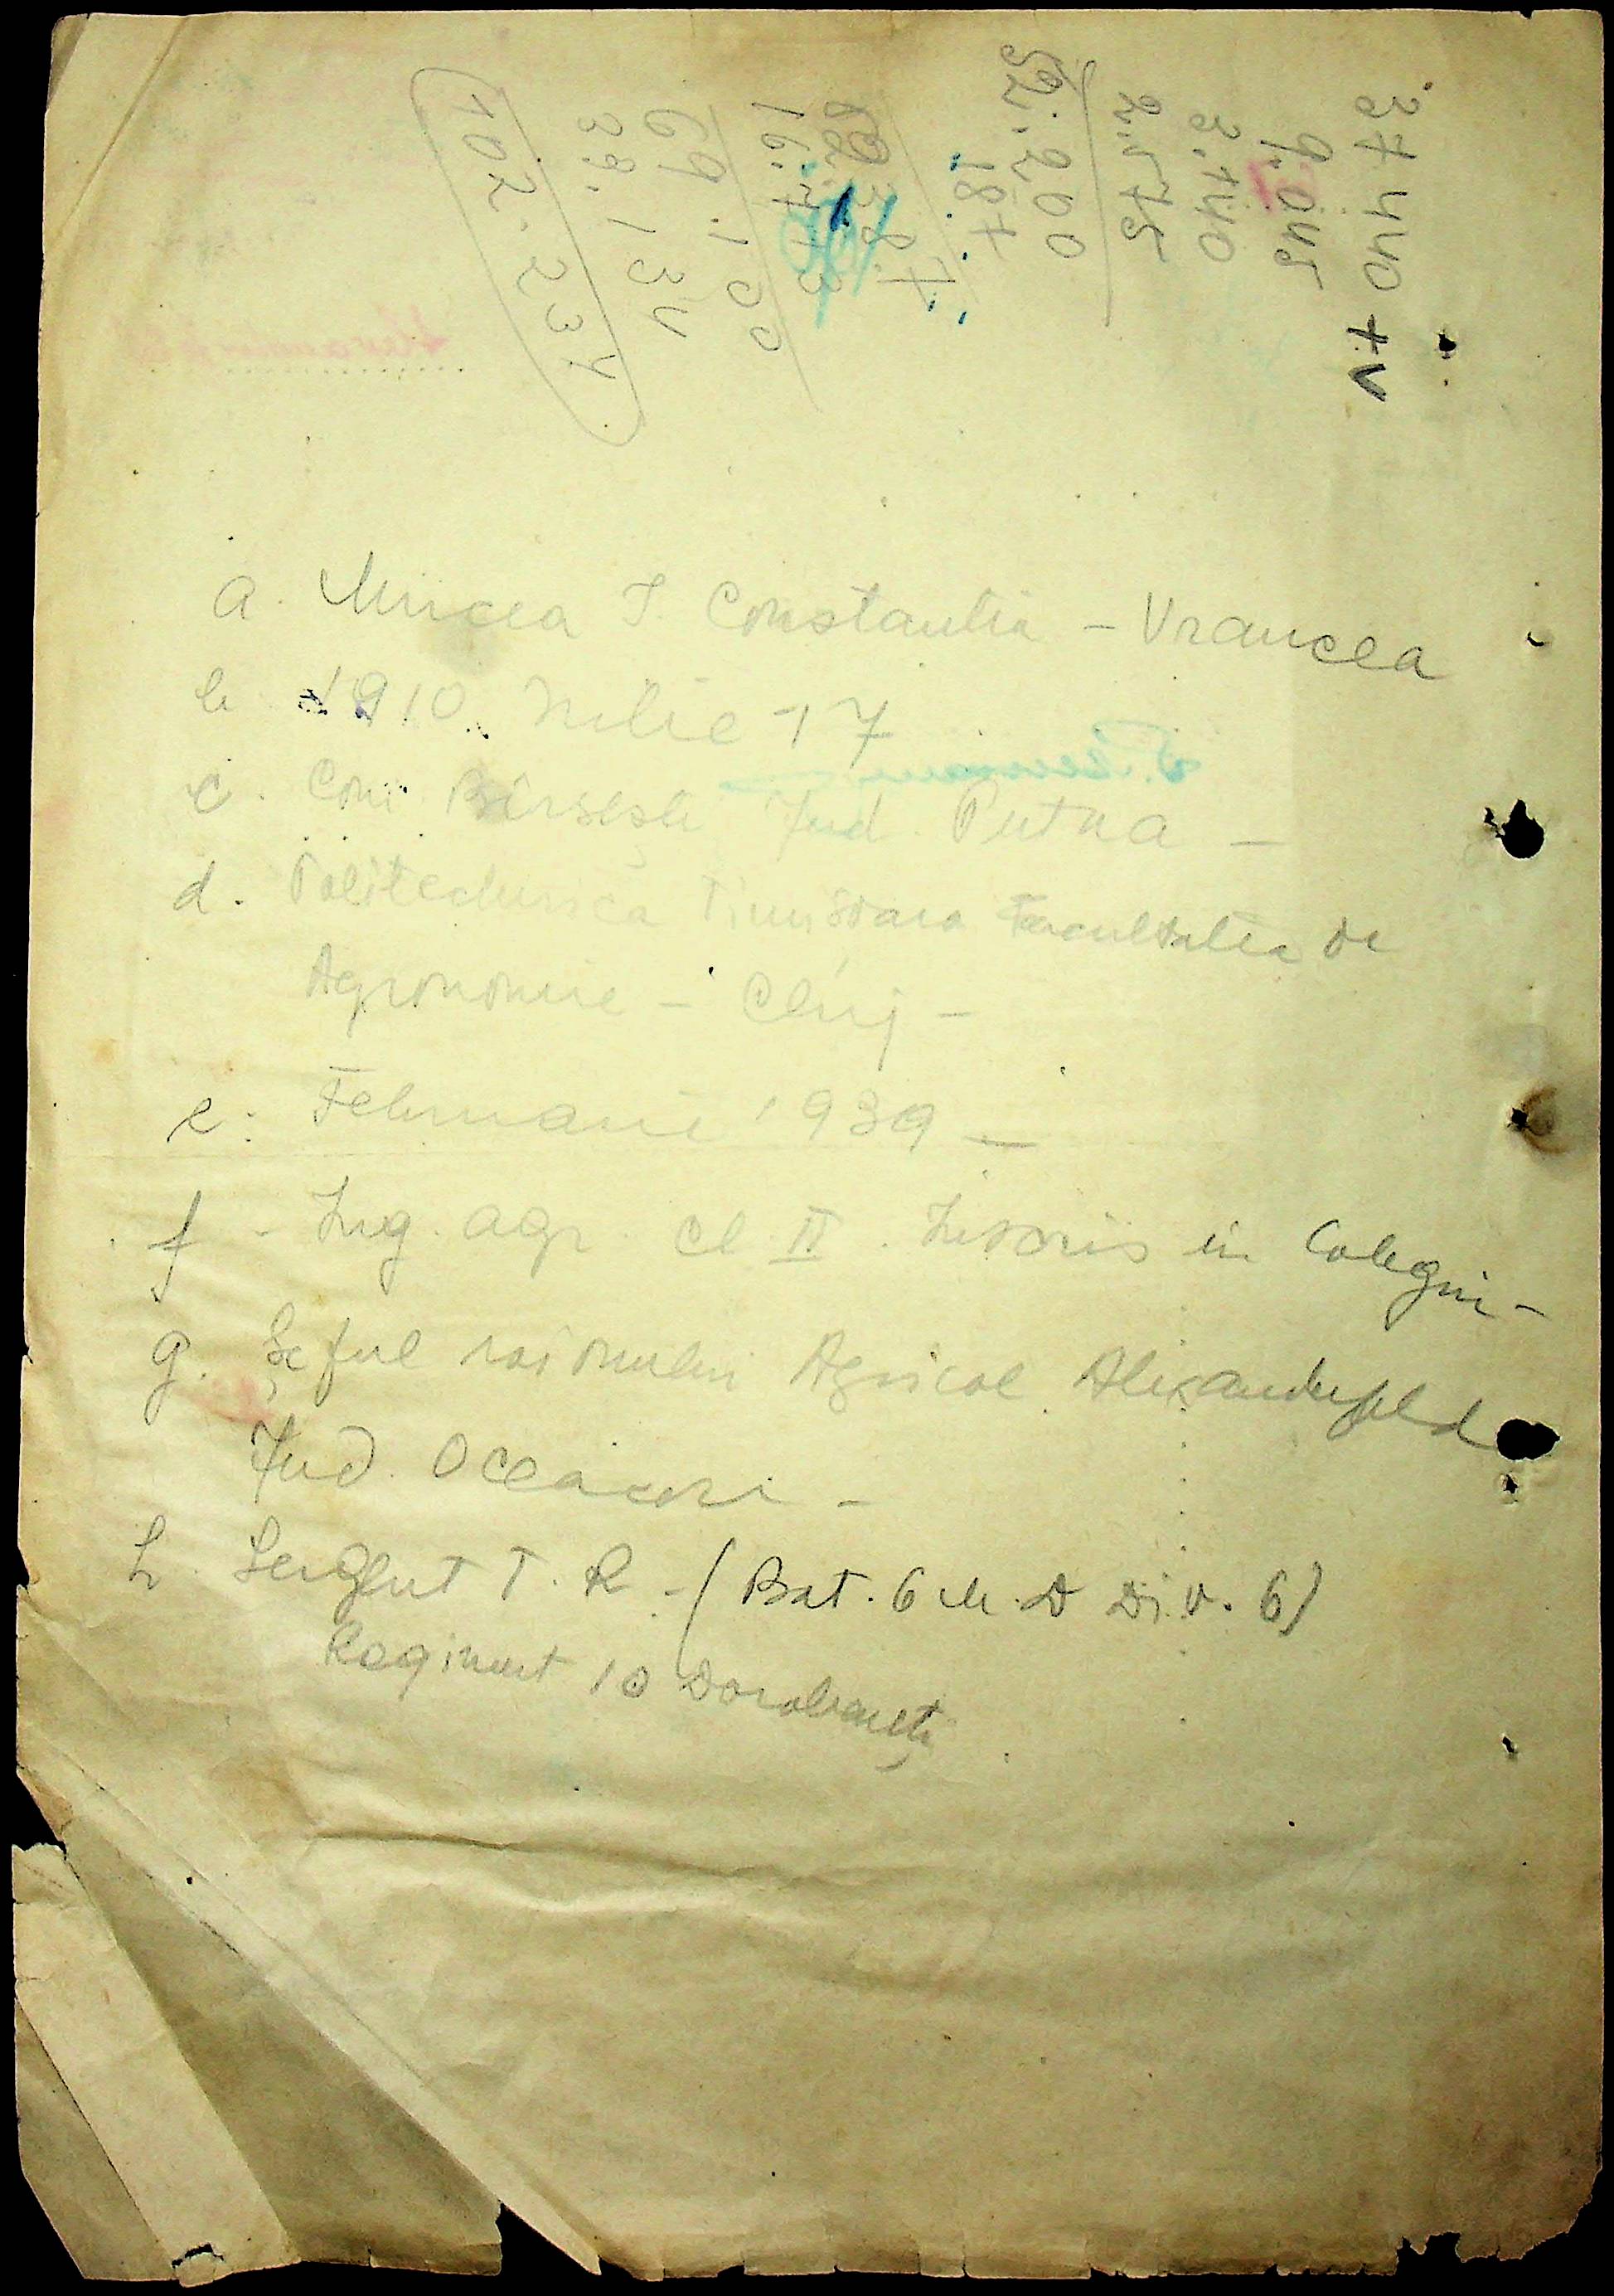 37 440 + V
9.045
3.740
2.575
52.200
187
16.713
69.100
33.134
102.234
a. Mircea I. Constantin – Vrancea
b 1910 Iulie 17
c. Com Bîrsești Jud. Putna –
d. Politechnica Timișoara Facultatea de
Agronomie – Cluj –
e. Februarie 1939 –
f – Ing. agr. cl. II. Inscris in Colegiu –
g. Șeful raionului Agricol Alexanderfeld
Jud. Oceacov –
h. Sergent T. R. – (Bat. 6 M. D Div. 6)
Regiment 10 Dorobanți